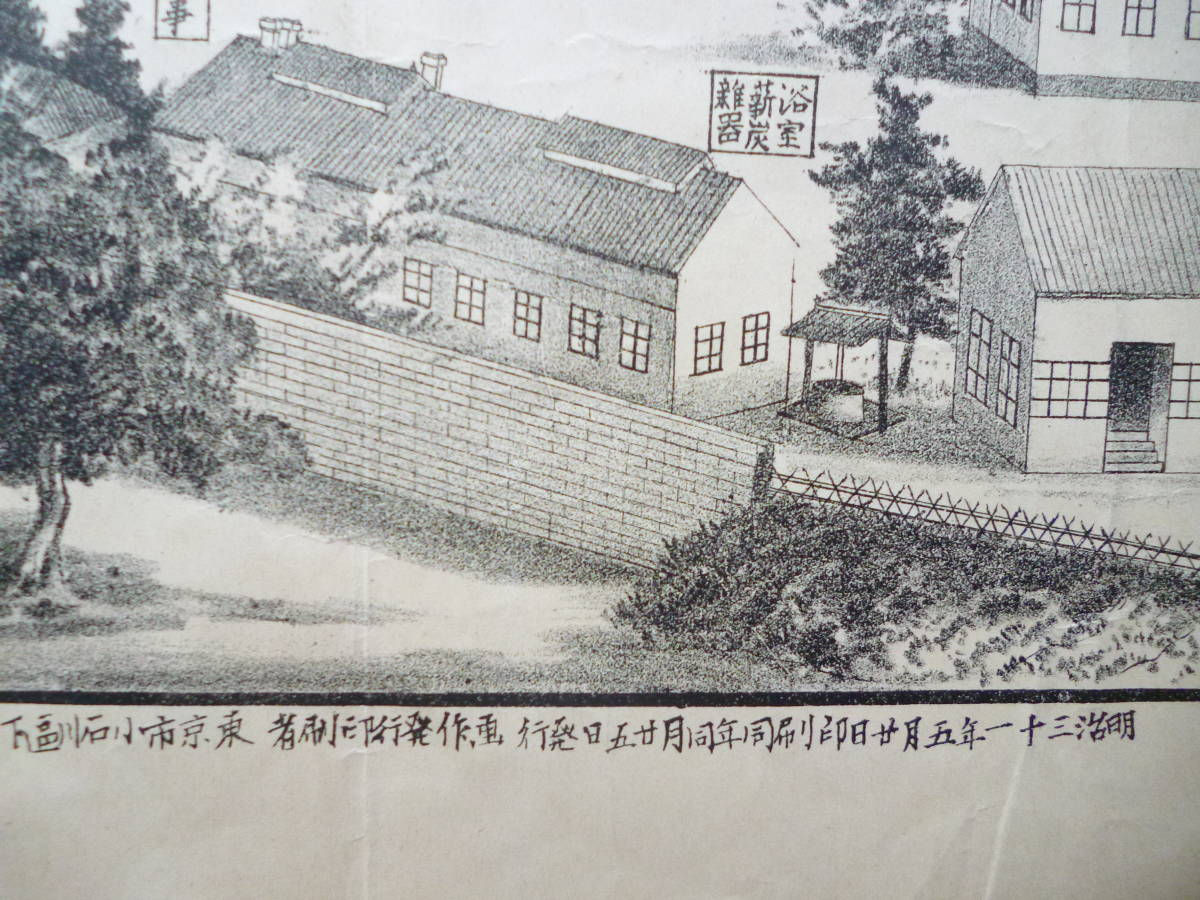 事
浴室
薪炭
雑器
明治三十一年五月廿日印刷同年同月廿五日発行 画作発行印刷者 東京市小石川区下